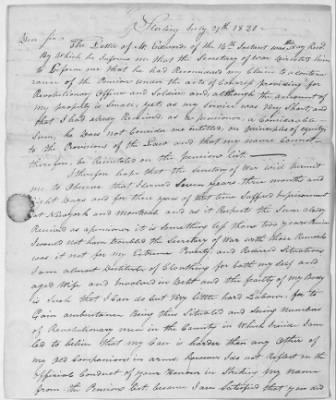 Sterling July 29th 1821
Dear Sir
The Letter of Mr. Edwards of the 14th Instant was duly Recd
By Which he Informs me that the Secretary of War directed him
to Inform me that he had Reconsidered my Claim to a continu
ance of the Pension under the acts of Congress providing for
Revolutionary Officers and Soldiers and, although the amount of
my property is Small, yets as my Service was Very Short and
that I had already Received, as a pensioner, a Considerable
Sum, he Does not Consider me entitled, on principles of equity
to the Provisions of the Laws and that my name Cannot
therefore, be Reinstated on the Pension list.
I therefore hope that the Secretary of War will permit
me to Observe that I Served Seven years three months and
eight Days and for three years of that time Suffered Imprisonment
at and Montreal and as it Respects the Sum already
Received as a pensioner it is Something less than two years
I would not have troubled the Secretary of War with these Remarks
was it not for my Extreme Poverty and Reduced Situation
I am almost Destitute of Cloathing for both my Self and
aged Wife and Involved in Debt and the frailty of my Body
is Such that I Can do But Very little hard Labour for to
Gain Being thus Situated and Seeing Numbers
of Revolutionary men in the County in Which I reside I am
Led to believe that my Case is harder than any Other of
my Old Companions in arms however I do not Reflect on the
Official Conduct of your Honour in Striking my name
from the Pension list because I am Satisfied that you did